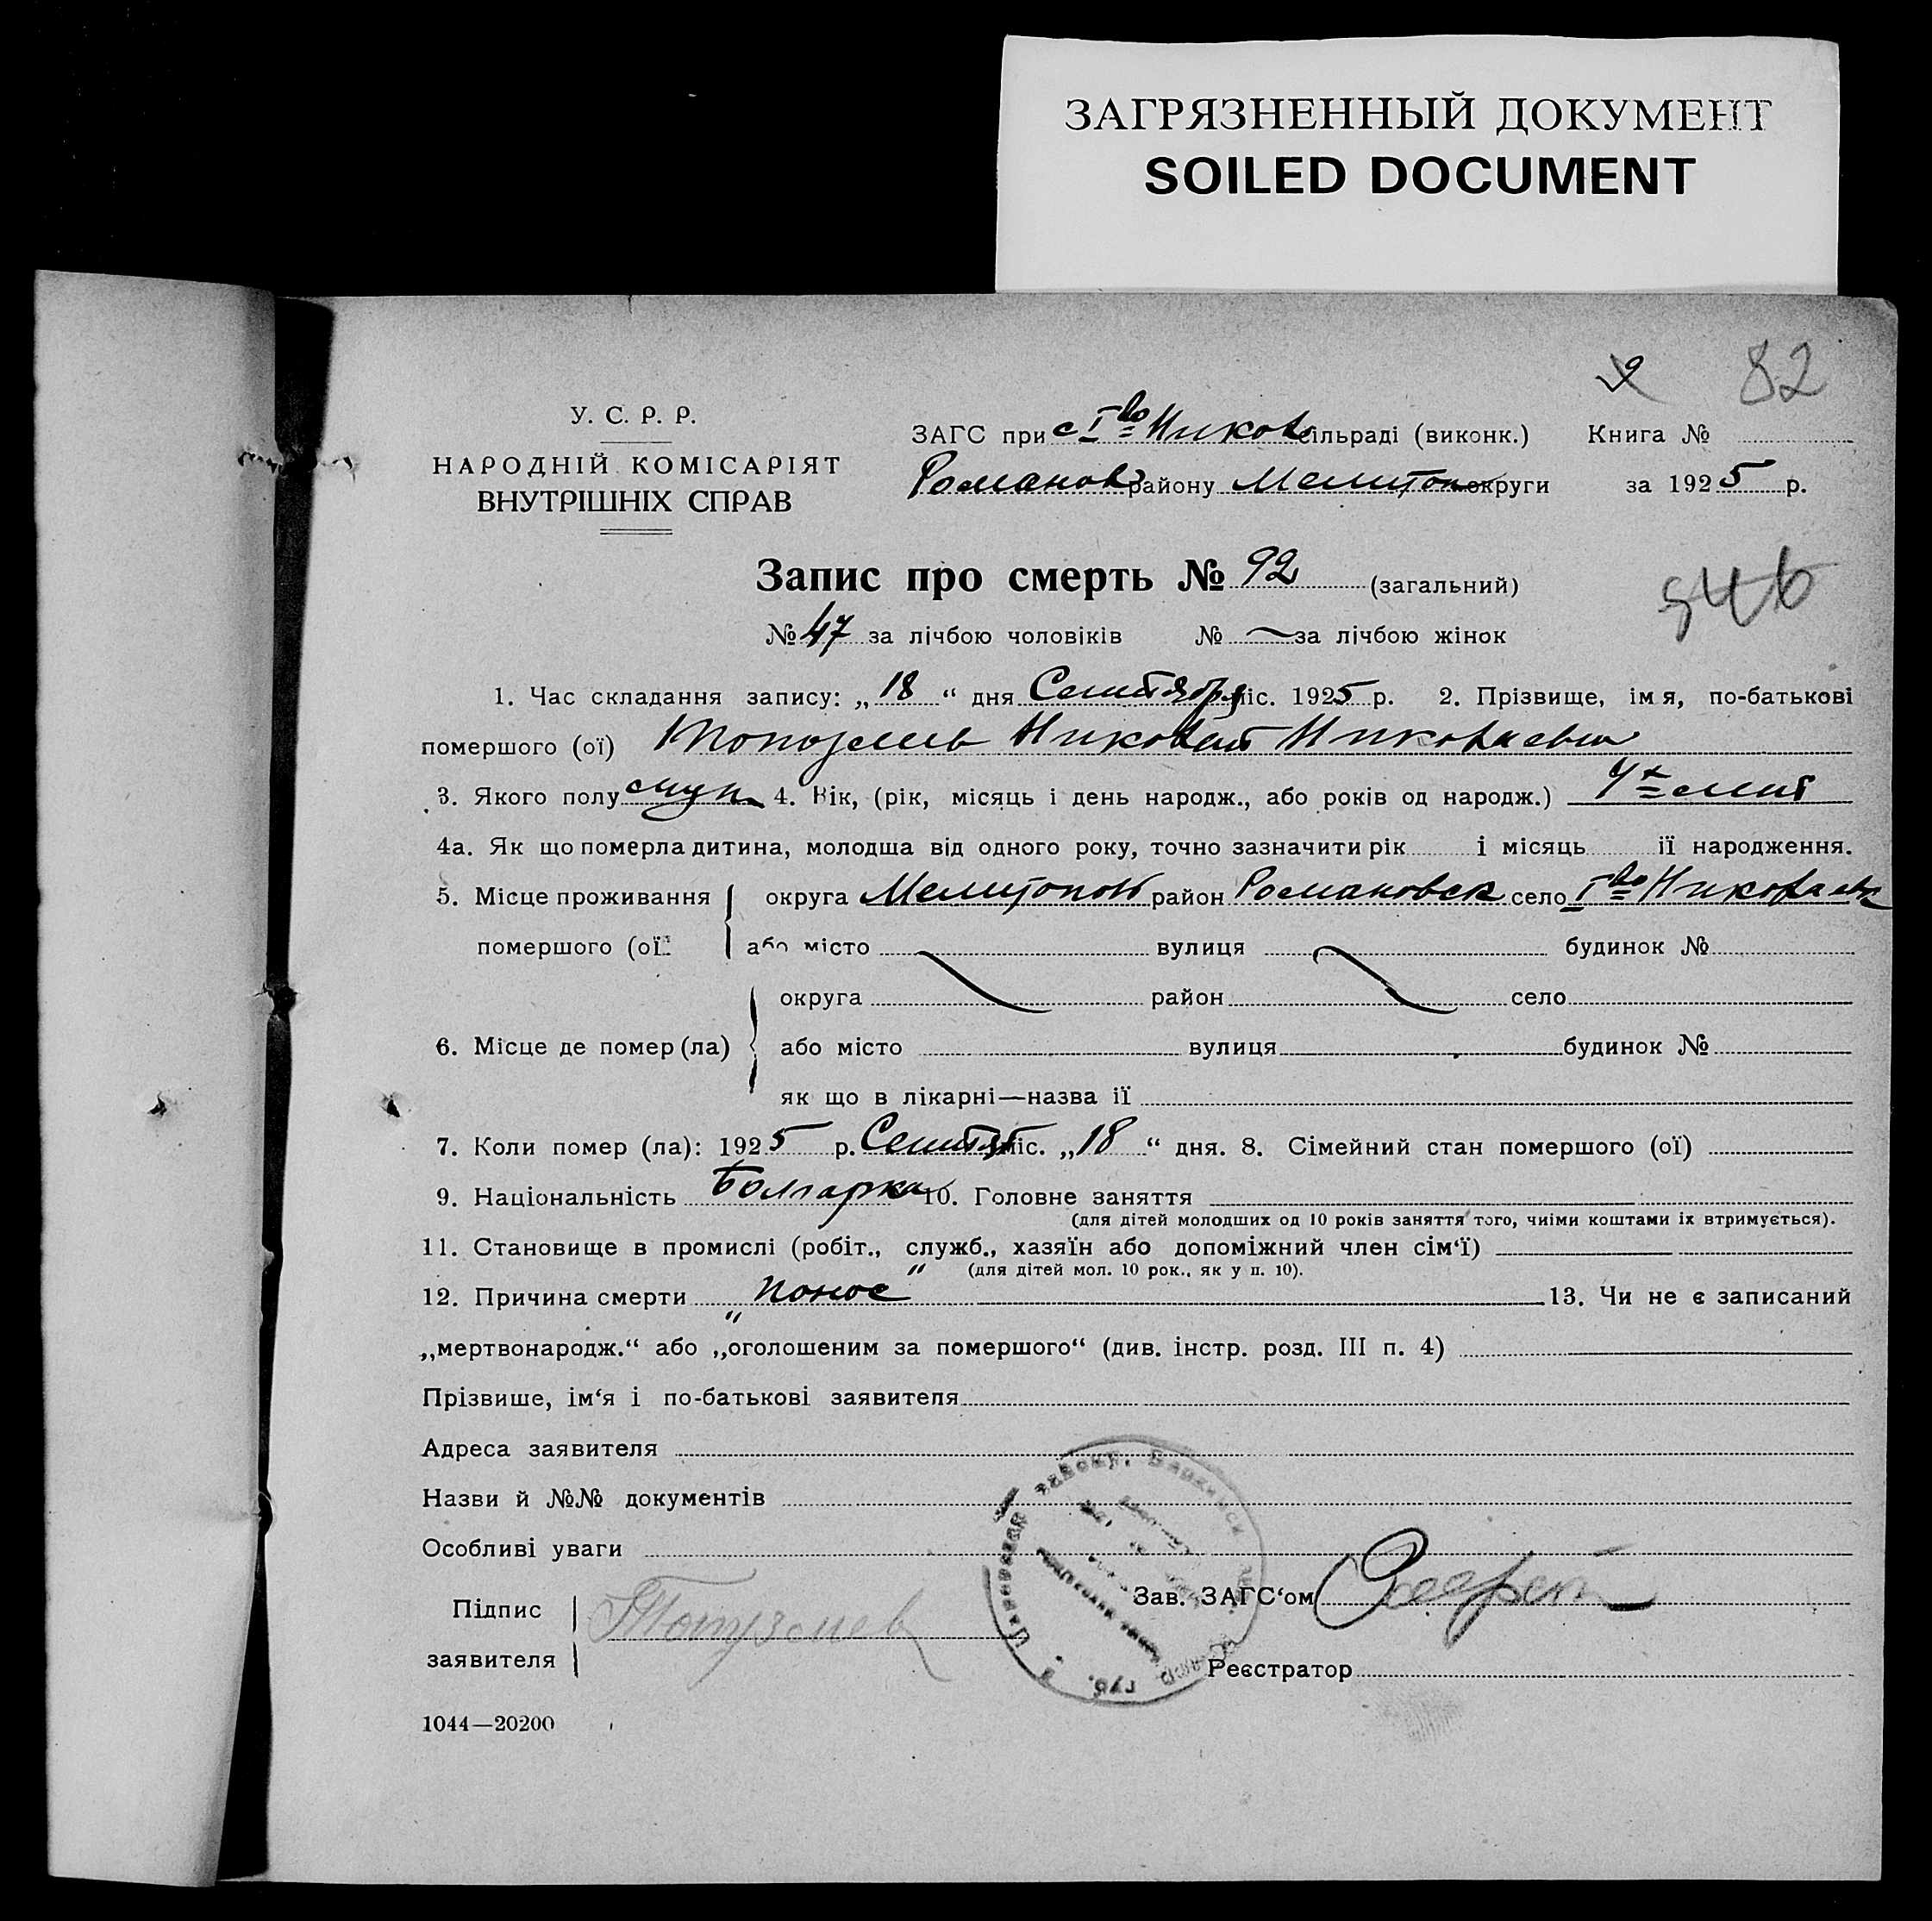 ЗАГРЯЗНЕННЫЙ ДОКУМЕНТ
SOILED DOCUMENT
82
У. С. Р. Р.
НАРОДНІЙ КОМІСАРІЯТ
ВНУТРІШНІХ СПРАВ
ЗАГС при с І во Никол сільраді (виконк.) Книга №
Романов району Мелитоп округи за 1925 р.
Запис про смерть № 92 (загальний)
546
№ 47 за лічбою чоловіків № за лічбою жінок
1. Час складання запису: „18“ дня Сентября міс. 1925 р. 2. Прізвище, імя, по-батькові
помершого (ої) Николай Николаевич
3. Якого полу муж. 4. Вік, (рік, місяць і день народж., або років од народж.)
4а. Як що померла дитина, молодша від одного року, точно зазначити рік і місяць її народження.
5. Місце проживання округа Мелитопол район Романовск село І во Николаевк
помершого (ої) або місто вулиця будинок №
округа район село
6. Місце де помер (ла) або місто вулиця будинок №
як що в лікарні—назва її
7. Коли помер (ла): 1925 р. Сентяб міс. „18“ дня. 8. Сімейний стан помершого (ої)
9. Національність Болгарка 10. Головне заняття
(для дітей молодших од 10 років заняття того, чиіми коштами іх втримується).
11. Становище в промислі (робіт., служб., хазяїн або допоміжний член сім‘ї)
(для дітей мол. 10 рок., як у п. 10).
12. Причина смерти „понос“ 13. Чи не є записаний
„мертвонародж.“ або „оголошеним за помершого“ (див. інстр. розд. III п. 4)
Прізвише, ім‘я і по-батькові заявителя
Адреса заявителя
Назви й №№ документів
Особливі уваги
Підпис
Зав. ЗАГС‘ом
заявителя
Реєстратор
1044—20200